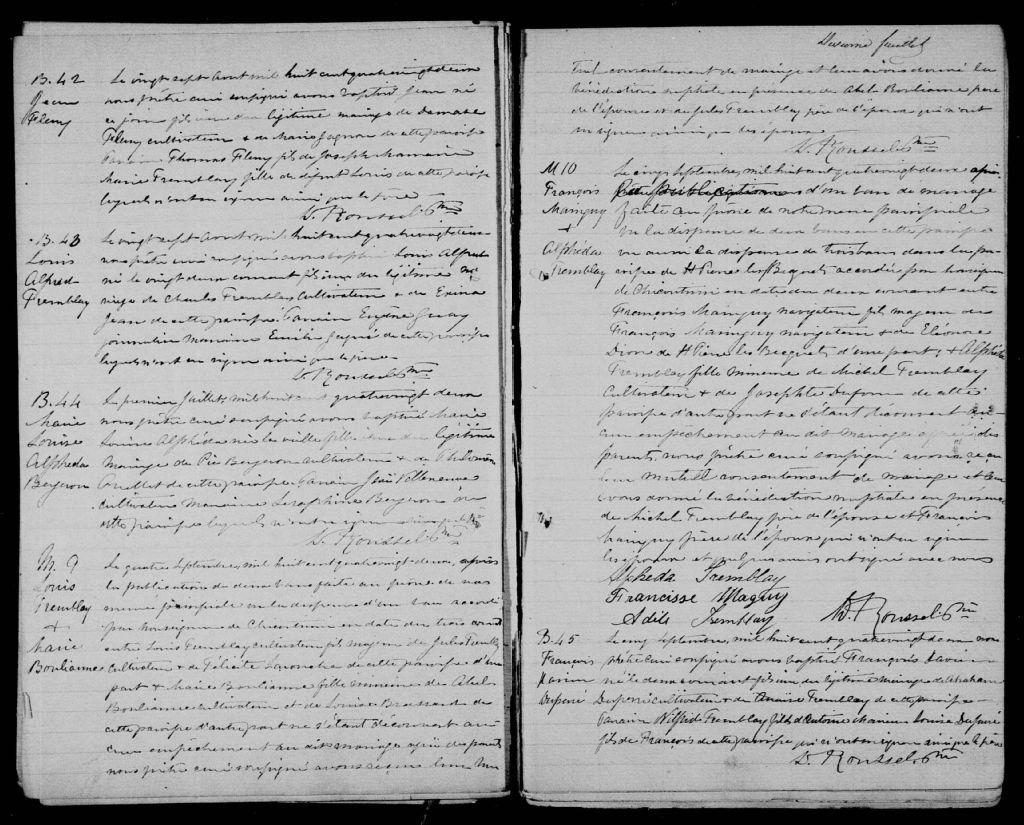 B. 42
Jean
Fleury
Le vingt sept Aout mil huit cent quatre vingt deux
nous prêtre curé soussigné avons baptisé Jean né
ce jour fils du légitime mariage de Damase
Fleury cultivateur & de Marie Gagnon de cette paroisse
Parrain Thomas Fleury fils de Joseph Marraine
Marie Tremblay fille de défunt Louis de cette paroisse
lesquels n'ont su signer ainsi que le père
D. Roussel Ptre
B. 43
Louis
Alfred
Tremblay
Le vingt sept Aout mil huit cent quatre vingt deux
nous prêtre curé soussigné avons baptisé Louis Alfred
né le vingt deux courant fils du légitime ma
riage de Charles Tremblay Cultivateur & de Exina
Jean de cette paroisse Parrain Eugène Guay
journalier Marraine Emélie de cette paroisse
lesquels n'ont su signer ainsi que le père
D. Roussel Ptre
B. 44
Marie
Louise
Alphéda
Bergeron
Le premier Juillet, mil huit cent quatre vingt deux
nous prêtre curé soussigné avons baptisé Marie
Louise Alphéda née la veille fille du légitime
mariage de Bergeron cultivateur & de Philomène
Ouellet de cette paroisse Parrain Jean Villeneuve
cultivateur Marraine Séraphine Bergeron de
cette paroisse lesquels n'ont su signer ainsi que le père
D. Roussel Ptre
M. 9
Louis
Tremblay
+
Marie
Boulianne
Le quatre Septembre, mil huit cent quatre vingt deux, après
la publication de deux bans faite au prône de nos
messes paroissiales vu la dispense d'un ban accordé
par Monseigneur de Chicoutimi en date du trois courant
entre Louis Tremblay cultivateur fils majeur de Jules Tremblay
Cultivateur & de Félicité Larouche de cette paroisse d'une
part & Marie Boulianne fille mineure de Abel
Boulianne cultivateur et de Louise Brassard de
cette paroisse d'autre part ne s'étant découvert au-
cun empêchement au dit mariage des parents
nous prêtre curé soussigné avons reçu leur mu
feuillet
tuel consentement de mariage et leur avons donné la
bénédiction nuptiale en présence de Abel Boulianne père
de l'épouse et de Jules Tremblay père de l'époux qui n'ont
su signer ainsi que les époux
D. Roussel Ptre
M 10
François
Mainguy
+
Alphéda
Tremblay
Le cinq Septembre, mil huit cent quatre vingt deux après
publication d'un ban de mariage
faite au prône de notre messe paroissiale
vu la dispense de deux bans en cette paroisse
vu aussi la dispense de trois bans dans la pa
roisse de St Pierre les Becquets accordée par Monseigneur
de Chicoutimi en date du deux courant entre
François Mainguy navigateur fils majeur de
François Mainguy navigateur & de Eléonore
Dion de St Pierre les Becquets d'une part, & Alphéda
Tremblay fille mineure de Michel Tremblay
Cultivateur & de Josephte Dufour de cette
paroisse d'autre part ne s'étant découvert au-
cun empêchement au dit mariage des
parents, nous prêtre curé soussigné avons reçu
leur mutuel consentement de mariage et leur
avons donné la bénédiction nuptiale en présence
de Michel Tremblay père de l'épouse et François
Mainguy père de l'époux qui n'ont su signer
les époux et quelques amis ont signé avec nous
Alpheda Tremblay
Francisse Maguy
Adèle Tremblay
D. Roussel Ptre
B. 45
François
Xavier
Dufour
Le cinq Septembre, mil huit cent quatre vingt deux nous
prêtre curé soussigné avons baptisé François Xavier
né le deux courant fils du légitime mariage de Abraham
Dufour cultivateur & de Tremblay de cette paroisse
Parrain Wilfrid Tremblay fils d'Antoine Marraine Louise Dufour
fille de François de cette paroisse qui n'ont su signer ainsi que le père
D. Roussel Ptre